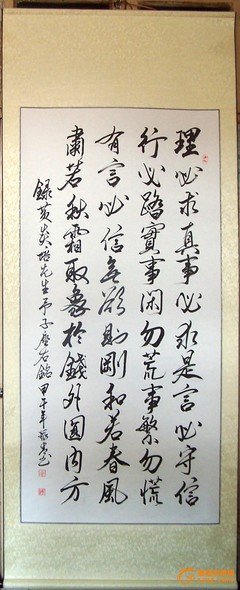 理必求真事必求是言必守信
行必踏實事闲勿荒事繁勿慌
有言必信無欲則剛和若春風
肅若秋霜取象於錢外圆内方
録黄炎培先生予子座右銘甲午年书